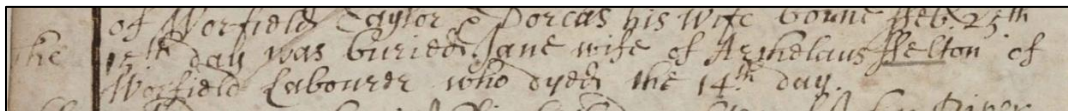 of Worfield Taylor & Dorcas his wife borne ffeb 25th
The 15th day was buried Jane wife of Archelaus ffelton of
Worfield Labourer who dyed the 14th day.